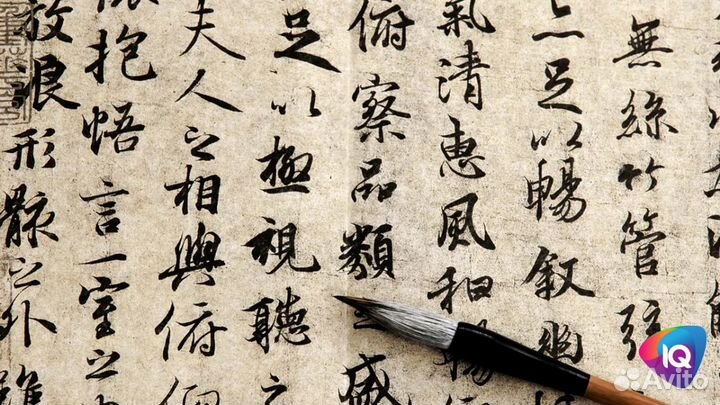 無絲竹管弦
亦足以暢叙幽
氣清惠風和暢
俯察品類之盛
足以極視聽之
夫人之相與俯
抱悟言一室之
放浪形骸之外雖
IQ
Avito